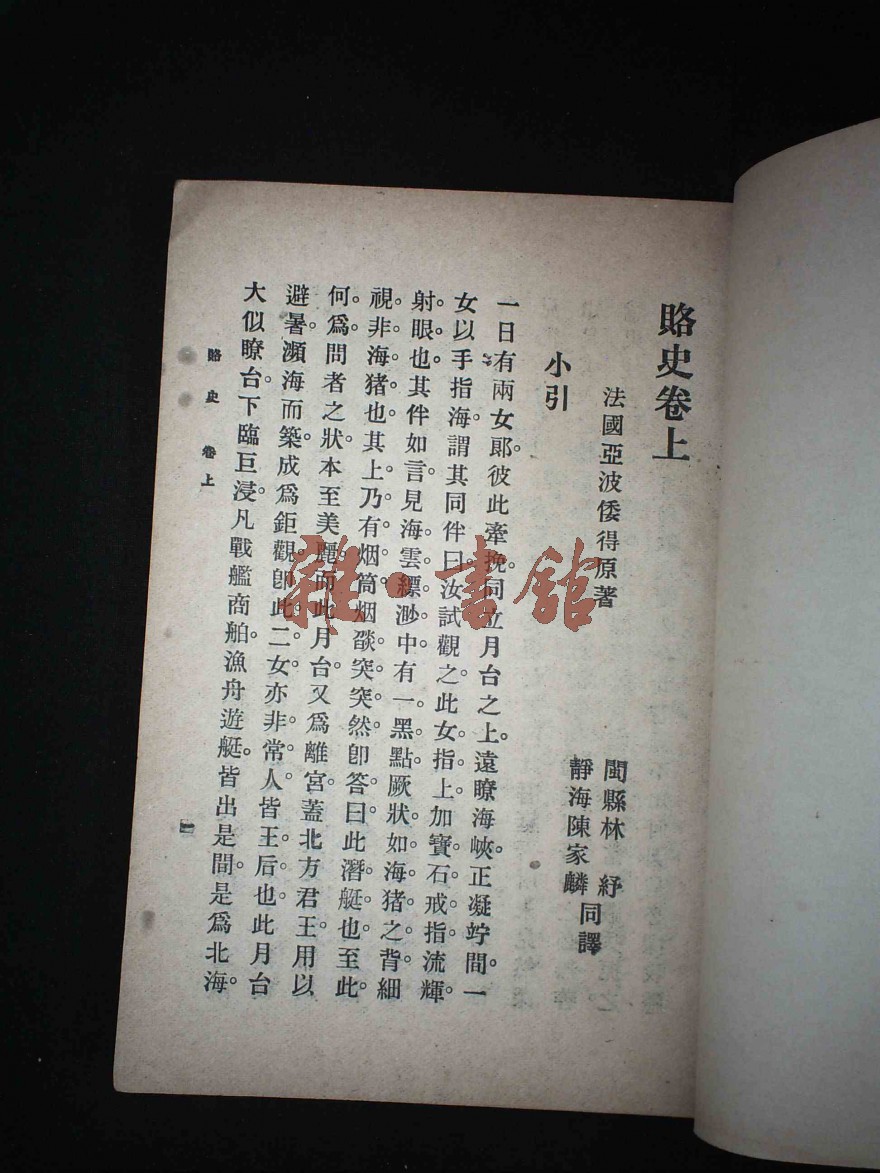 賂史卷上
法國亞波倭得原著
閩縣林　紓
靜海陳家麟 同譯
小引
一日有兩女郎。彼此牽挽。同立月台之上。遠瞭海峽。正凝竚間。一
女以手指海。謂其同伴曰。汝試觀之。此女指上加寶石戒指。流輝
射眼也。其伴如言見海雲縹渺中。有一黑點。厥狀如海猪之背。細
視。非海猪也。其上乃有烟筒。烟燄突突然。卽答曰。此潛艇也。至此
何爲。問者之狀本至美麗。而此月台又爲離宮。蓋北方君王用以
避暑。瀕海而築。成爲鉅觀。卽此二女。亦非常人。皆王后也。此月台
大似瞭台。下臨巨浸。凡戰艦商舶漁舟遊艇。皆出是間。是爲北海。
賂史　卷上
一
雜·書館